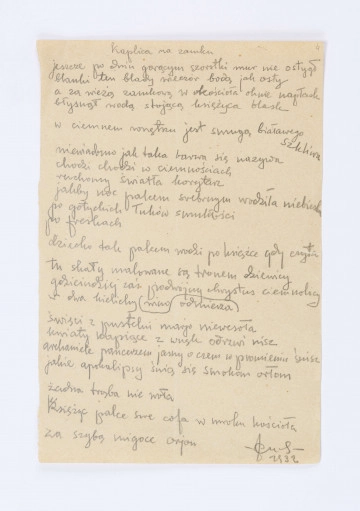 Kaplica na zamku
jeszcze po dniu gorącym szorstki mur nie ostygł
blanki ten blady wieczór bodą jak osty
a za wieżą zamkową w okna
błysnął wodą stojącą księżyca blask
w ciemnem jest smuga białawego
szkliwa
niewiadomo jak taka barwa się nazywa
chodzi chodzi w ciemnościach
ruchomy światła korytarz
jakby noc palcem srebrnym wodziła niebieska
po gotyckich łuków smukłości
po freskach
dziecko tak palcem wodzi po książce gdy czyta
tu skały malowane są tronem dziewicy
gościnniejszy zaś podwójny chrystus ciemnolicy
w dwa kielichy wino
święci z pustelni mają niewesoło
kwiaty klapiące z nisz
archanioł pancerzem jasny o czem w promieniu
jakie apokalipsy śnią się smokom orłom
żadna trąba nie woła
Księżyc palce swe cofa w mroku kościoła
za szybą migoce orjon
1932